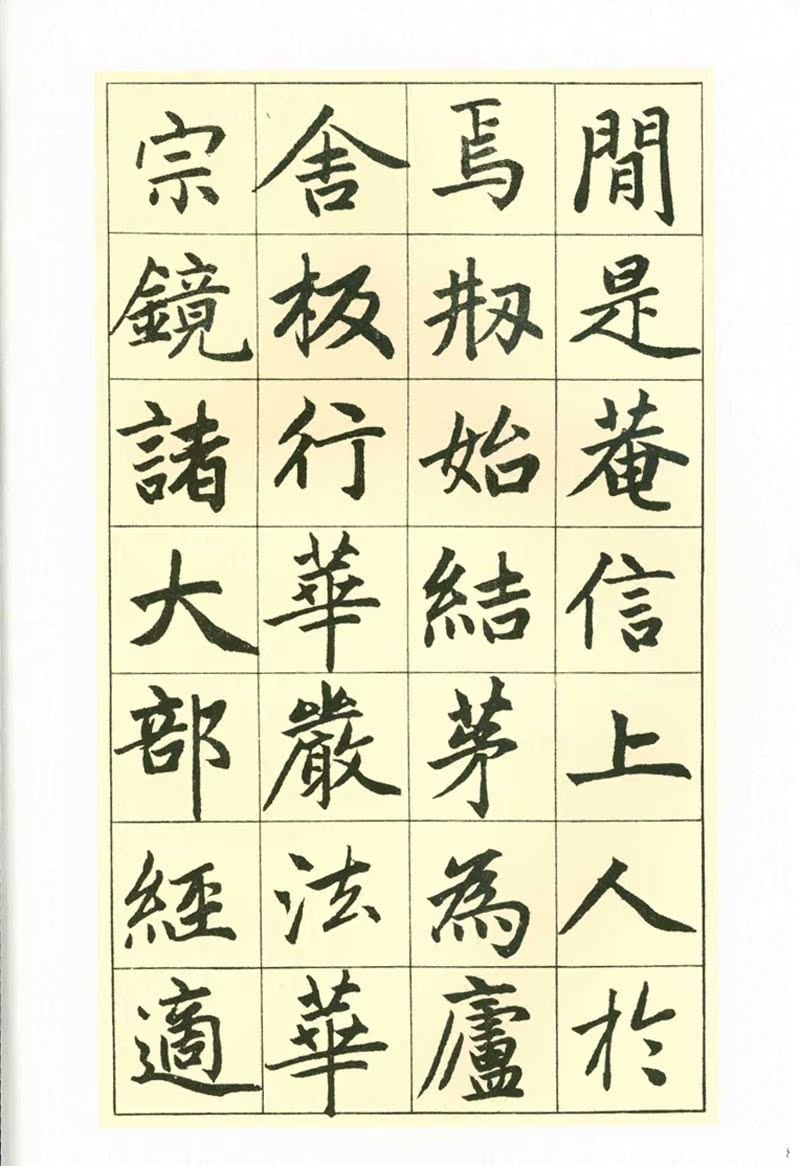 間是菴信上人於
焉刱始結茅為廬
舎板行華嚴法華
宗鏡諸大部經適